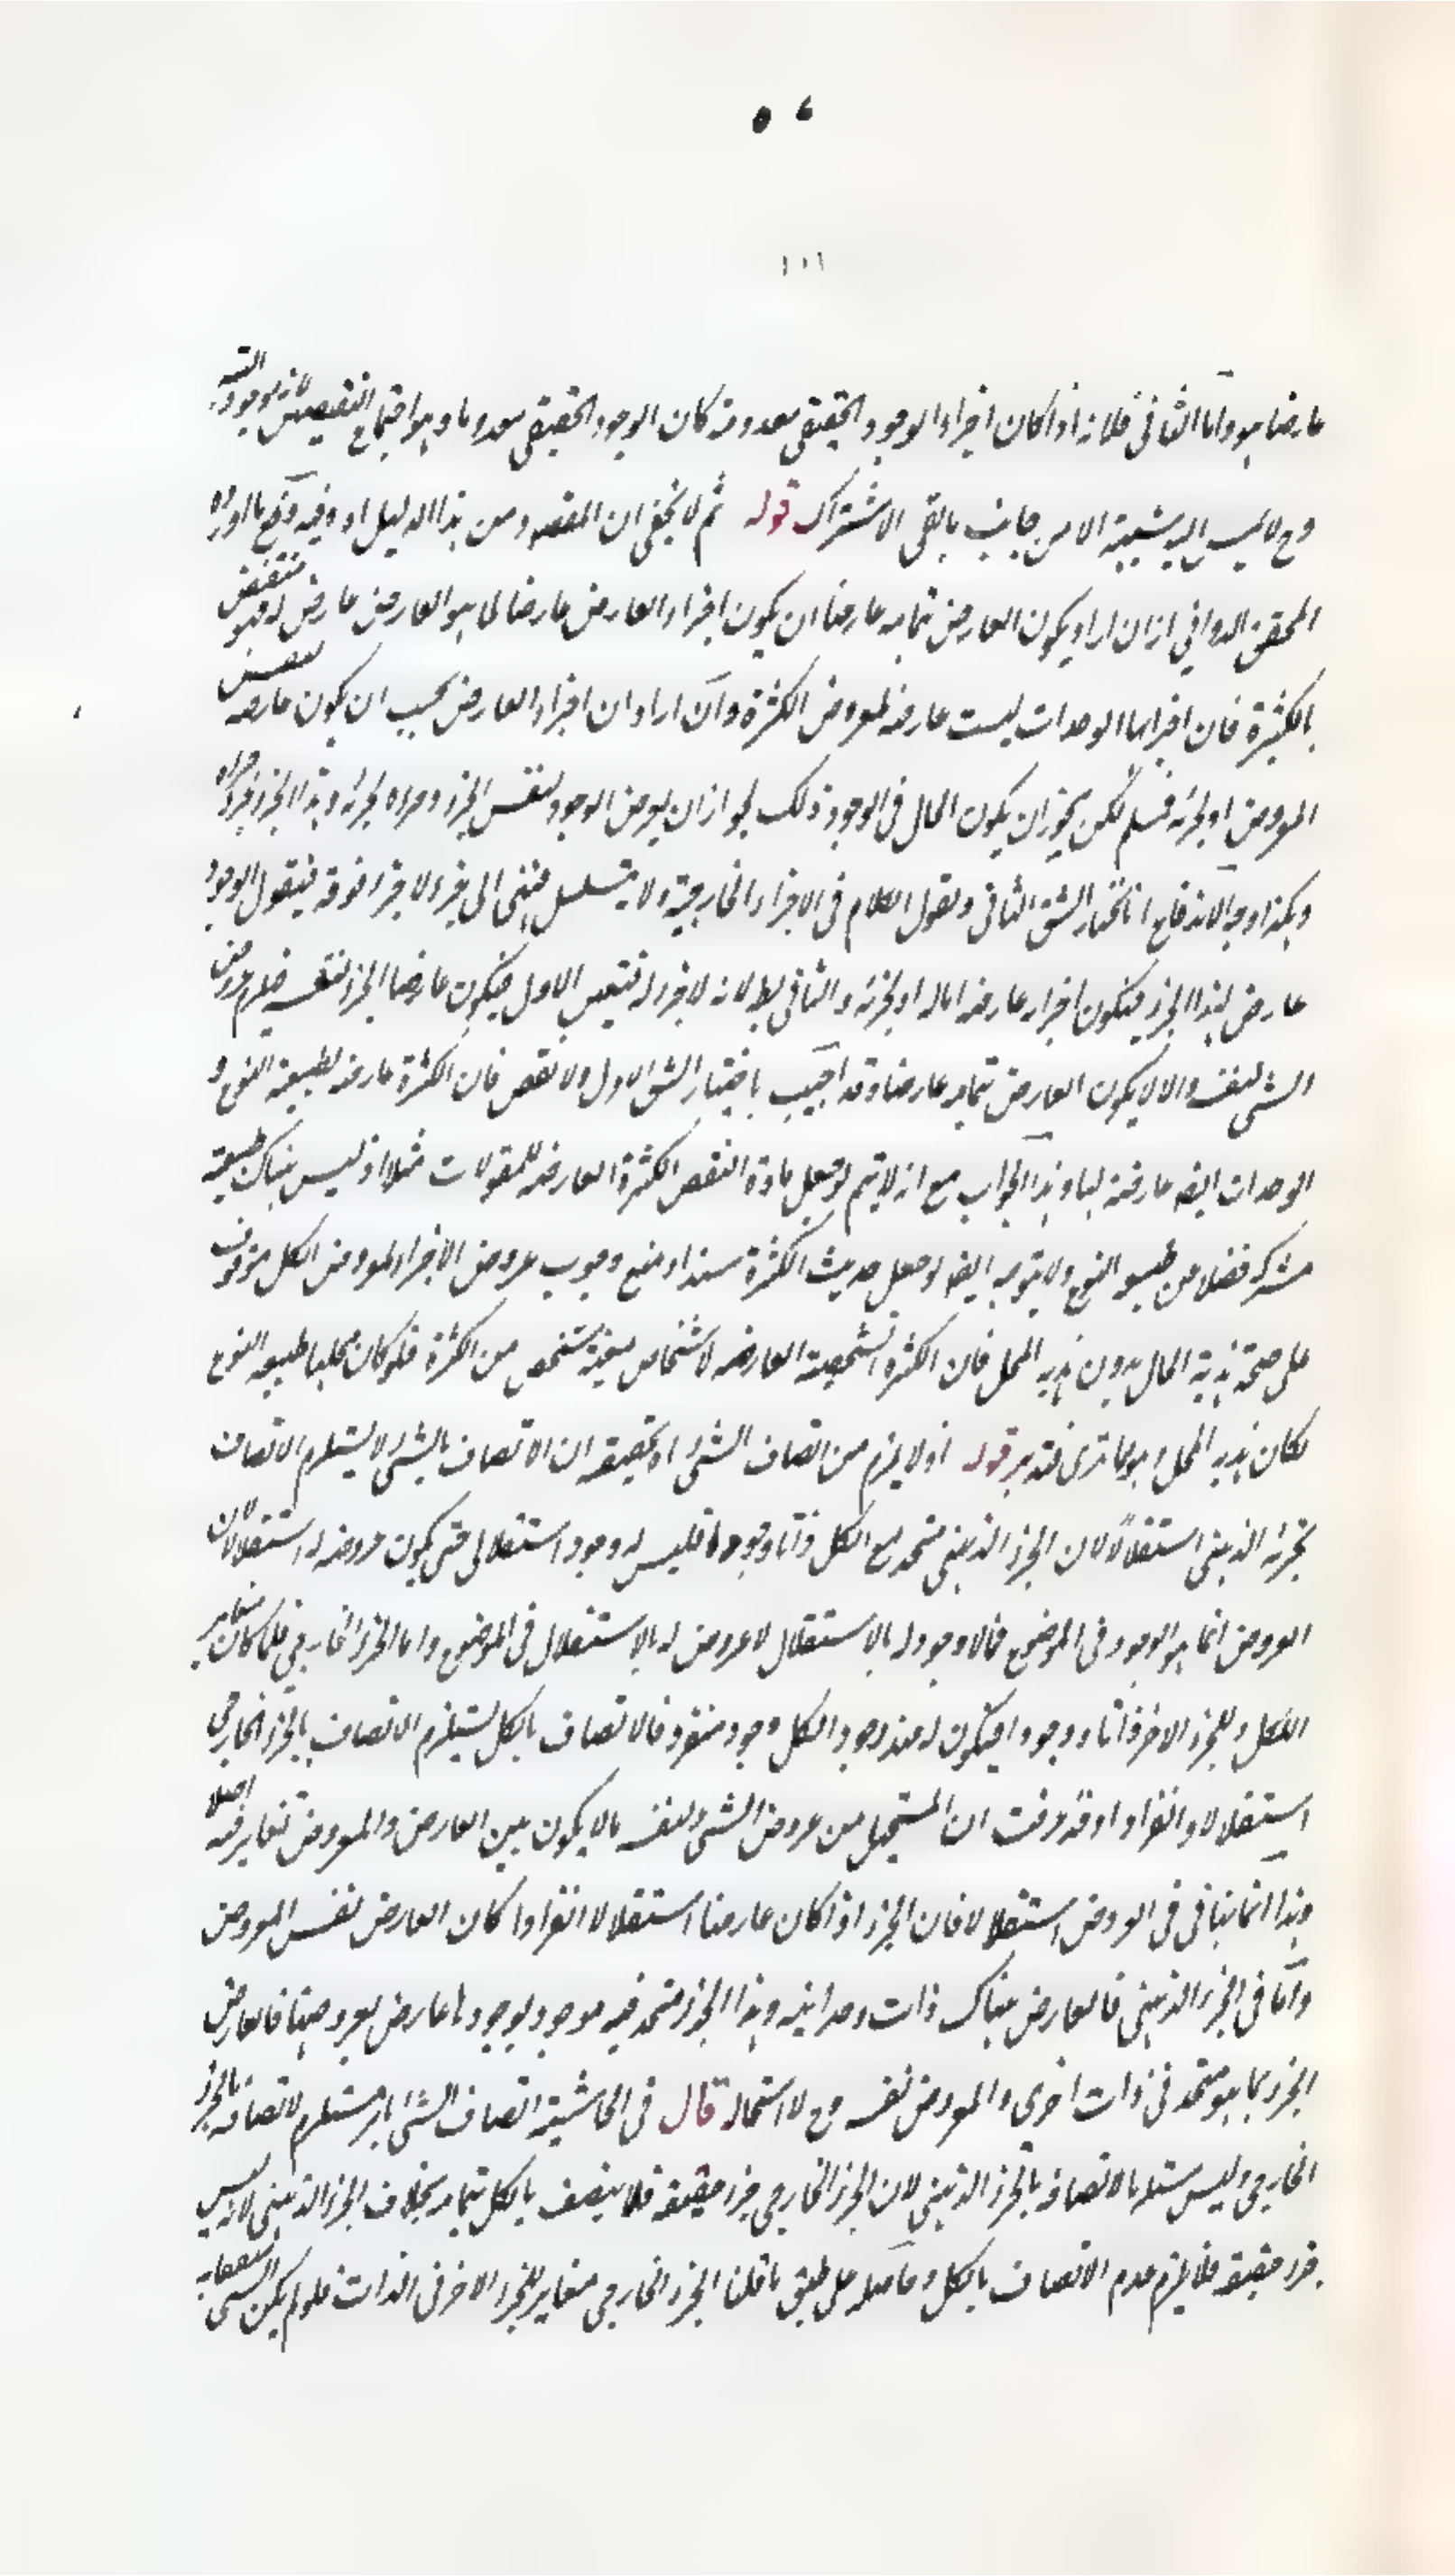 ١٠١
عارضا هو واما الثاني فلانه اذا كان اجزاء الوجود الحقيقي معدومة كان الوجود الحقيقي معدوما وهو اجتماع النقيضين لانه موجود
وح لا ليس اليه شيبة الا من جانب بالقي الاشتراك قوله ثم لا يخفى ان المقصود من هذا الدليل اه وفيه دفع ما اورده
المحقق الدواني انه ان اراد بكون العارض بتمامه عارضا ان يكون اجزاء العارض عارضا لما هو العارض عارض له فهو منتقض
بالكثرة فان اجزاءها الوحدات ليست عارضة لمعروض الكثرة وان اراد ان اجزاء العارض يجب ان يكون عارضة لنفس
المعروض او لجزئه فمسلم لكن يجوز ان يكون الحال في الوجود كذلك لجواز ان يعرض الوجود لنفس الجزء وجزءه لجزئه وهذا الجزء لجزء
وهكذا وجه الاندفاع انا نختار الشق الثاني ونقول الكلام في الاجزاء الخارجية ولا يتسلسل فينتهي الى جزء لا جزء فوقه فيقول الوجود
عارض لهذا الجزء فيكون اجزاءه عارضة اما له او لجزئه والثاني بط لانه لا جزء له فتعين الاول فيكون عارضا الجزء لنفسه فيلزم عروض
الشيء لنفسه والا لا يكون العارض بتمامه عارضا وقد اجيب باختيار الشق الاول ولا نقض فان الكثرة عارضة لطبيعة النوع و
الوحدات ايضا عارضة لها وهذا الجواب مع انه لا يتم لو جعل مادة النقض الكثرة العارضة للمقولات مثلا اذ ليس هناك طبيعة
مشتركة فضلا عن طبيعة النوع ولا يتوجه ايضا لو جعل حديث الكثرة سندا و منع وجوب عروض الاجزاء لمعروض الكل موقوف
على صحة بذية الحال بدون بذيه المحل فان الكثرة الشخصية العارضة لاشخاص معينة شخص من الكثرة فلو كان محلها طبيعة النوع
لكان بذيه المحل وهو كما ترى فتدبر قوله اذ لا يلزم من اتصاف الشيء اه تحقيقه ان الاتصاف بالشيء لا يستلزم الاتصاف
بجزئه الذهني استقلالا لان الجزء الذهني متحد مع الكل ذاتا ووجودا فليس له وجود استقلالي حتى يكون عروضه له استقلالا لان
العروض انما هو الوجود في الموضوع فما لا وجود له بالاستقلال لا عروض له بالاستقلال في الموضوع واما الجزء الخارجي فلما كان مغايرا
للكل وللجزء الاخر ذاتا ووجودا فيكون له عند وجود الكل وجود منفرد فالاتصاف بالكل يستلزم الاتصاف بالجزء الخارجي
استقلالا وانفرادا وقد عرفت ان المستحيل من عروض الشيء لنفسه ما لا يكون بين العارض والمعروض تغاير فيه اصلا
وهذا انما ينافي في العروض استقلالا فان الجزء اذا كان عارضا استقلالا انفرادا كان العارض نفس المعروض
واما في الجزء الذهني فالعارض هناك ذات وحدانية وهذا الجزء متحد فيه موجود بوجودها عارض بعروضها فالعارض
الجزء بما هو متحد في ذات اخرى والمعروض نفسه وح لا استحالة قال في الحاشية اتصاف الشيء بامر مستلزم لاتصافه بالجزء
الخارجي وليس مستلزما لاتصافه بالجزء الذهني لان الجزء الخارجي جزء حقيقة فلا يتصف بالكل بتمامه بخلاف الجزء الذهني لانه ليس
جزء حقيقة فلا يلزم عدم الاتصاف بالكل وحاصله على طبق ما قلنا الجزء الخارجي مغاير للجزء الاخر في الذات فلو لم يكن الشيء